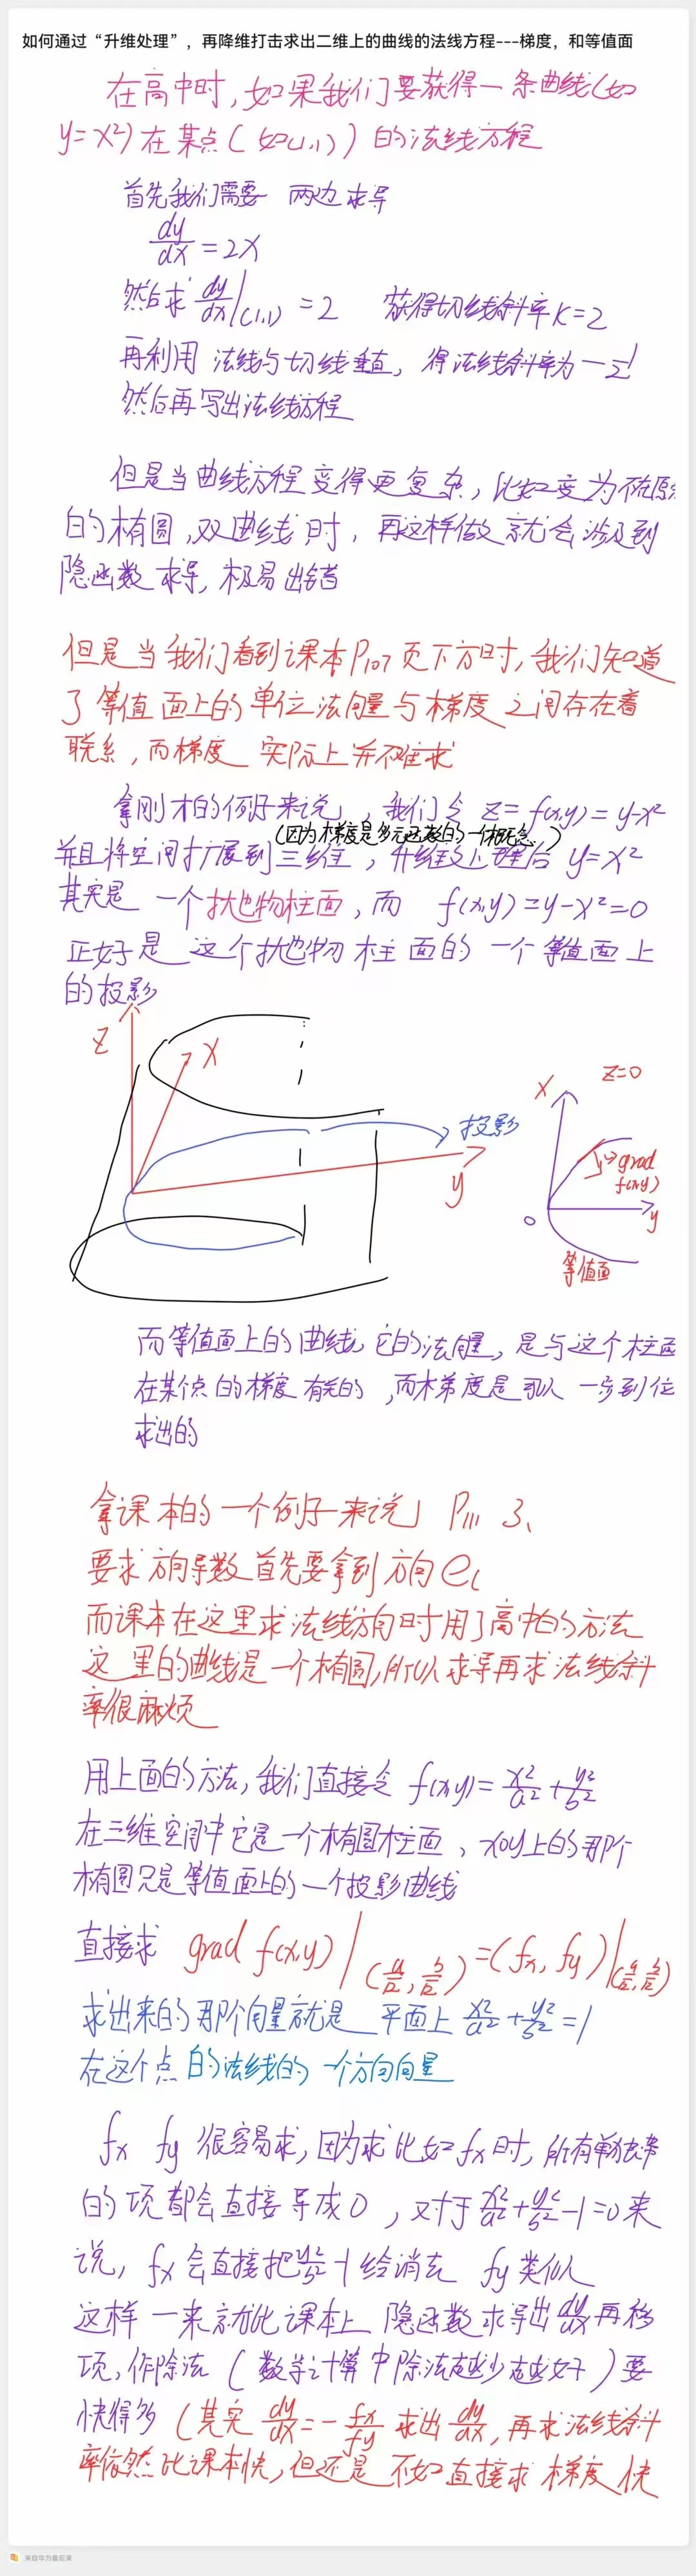 如何通过“升维处理”，再降维打击求出二维上的曲线的法线方程---梯度，和等值面
在高中时，如果我们要获得一条曲线(如
y=x²)在某点(如(1,1))的法线方程
首先我们需要 两边求导
dy/dx=2x
然后求 dy/dx|(1,1)=2 获得切线斜率K=2
再利用 法线与切线垂直，得法线斜率为-1/2
然后再写出法线方程
但是当曲线方程变得更复杂，比如变为
的椭圆，双曲线时，再这样做就会涉及到
隐函数求导，极易出错
但是当我们看到课本P107页下方时，我们知道
了等值面上的单位法向量与梯度之间存在着
联系，而梯度 实际上并不难求
拿刚才的例子来说，我们令 z=f(x,y)=y-x²
(因为梯度是多元函数的一个概念)
并且将空间扩展到三维，升维处理后 y=x²
其实是 一个抛物柱面，而 f(x,y)=y-x²=0
正好是 这个抛物柱面的一个等值面上
的投影
z
x
投影
y
x
z=0
grad
f(x,y)
o
y
等值面
而等值面上的曲线，它的法向量，是与这个柱面
在某个点的梯度有关的，而梯度是可以一步到位
求出的
拿课本的一个例子来说 P111 3、
要求方向导数首先要拿到方向el
而课本在这里求法线方向时用了高中的方法
这里的曲线是一个椭圆,所以求导再求法线斜
率很麻烦
用上面的方法,我们直接令 f(x,y)=x²/a²+y²/b²
在三维空间中它是一个椭圆柱面、xoy上的那个
椭圆只是等值面上的一个投影曲线
直接求 grad f(x,y)|(a/√2, b/√2)=(fx, fy)|(a/√2, b/√2)
求出来的那个向量就是 平面上 x²/a²+y²/b²=1
在这个点的法线的一个方向向量
fx fy 很容易求,因为求比如fx时,所有单独带
的项都会直接导成0，对于x²/a²+y²/b²-1=0来
说，fx会直接把y²/b²-1给消去 fy类似
这样一来就比课本上 隐函数求导出dy/dx再移
项，作除法(数学计算中除法越少越好)要
快得多(其实 dy/dx=-fx/fy 求出dy/dx,再求法线斜
率依然比课本快,但还是不如直接求梯度快
来自华为备忘录